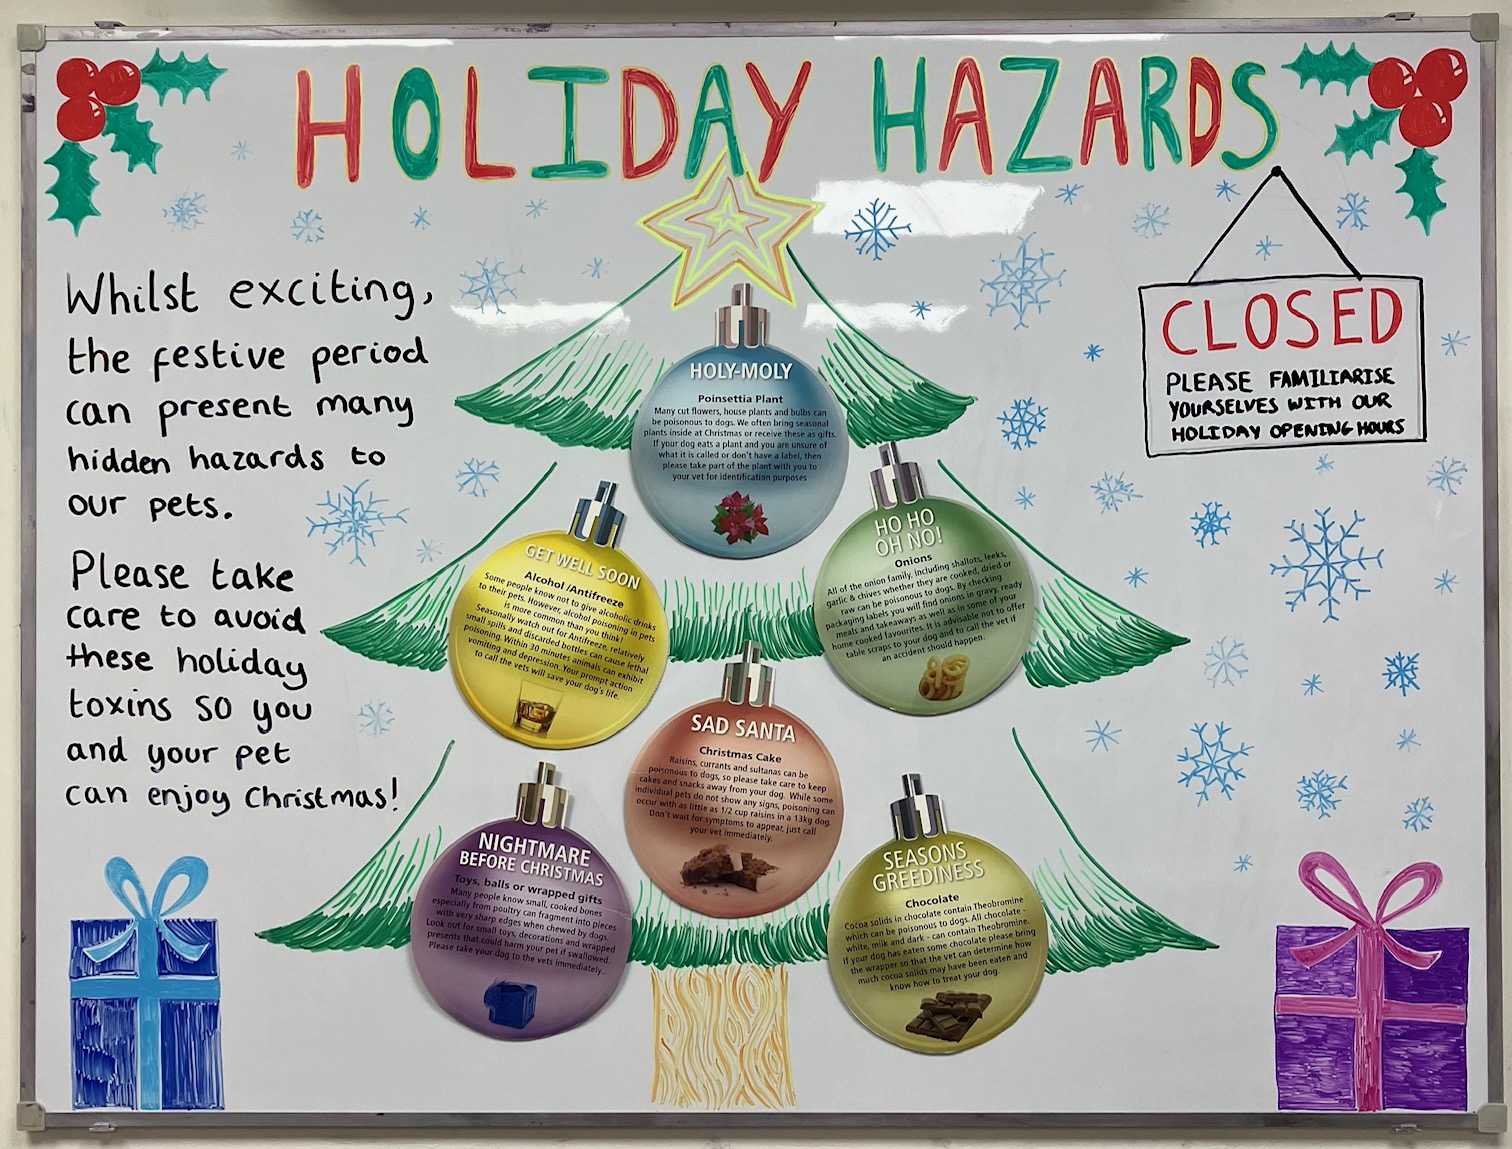 HOLIDAY HAZARDS
Whilst exciting,
the festive period
can present many
hidden hazards to
our pets.
Please take
care to avoid
these holiday
toxins so you
and your pet
can enjoy Christmas!
CLOSED
PLEASE FAMILIARISE
YOURSELVES WITH OUR
HOLIDAY OPENING HOURS
HOLY-MOLY
Poinsettia Plant
Many cut flowers, house plants and bulbs can
be poisonous to dogs. We often bring seasonal
plants inside at Christmas or receive these as gifts.
If your dog eats a plant and you are unsure of
what it is called or don't have a label, then
please take part of the plant with you to
your vet for identification purposes
GET WELL SOON
Alcohol /Antifreeze
Some people know not to give alcoholic drinks
to their pets. However, alcohol poisoning in pets
is more common than you think!
Seasonally watch out for Antifreeze, relatively
small spills and discarded bottles can cause lethal
poisoning. Within 30 minutes animals can exhibit
vomiting and depression. Your prompt action
to call the vets will save your dog's life.
HO HO
OH NO!
Onions
All of the onion family, including shallots, leeks,
garlic & chives whether they are cooked, dried or
raw can be poisonous to dogs. By checking
packaging labels you will find onions in gravy, ready
meals and takeaways as well as in some of your
home cooked favourites. It is advisable not to offer
table scraps to your dog and to call the vet if
an accident should happen.
SAD SANTA
Christmas Cake
Raisins, currants and sultanas can be
poisonous to dogs, so please take care to keep
cakes and snacks away from your dog. While some
individual pets do not show any signs, poisoning can
occur with as little as 1/2 cup raisins in a 13kg dog.
Don't wait for symptoms to appear, just call
your vet immediately.
NIGHTMARE
BEFORE CHRISTMAS
Toys, balls or wrapped gifts
Many people know small, cooked bones
especially from poultry can fragment into pieces
with very sharp edges when chewed by dogs.
Look out for small toys, decorations and wrapped
presents that could harm your pet if swallowed.
Please take your dog to the vets immediately.
SEASONS
GREEDINESS
Chocolate
Cocoa solids in chocolate contain Theobromine
which can be poisonous to dogs. All chocolate -
white, milk and dark - can contain Theobromine.
If your dog has eaten some chocolate please bring
the wrapper so that the vet can determine how
much cocoa solids may have been eaten and
know how to treat your dog.